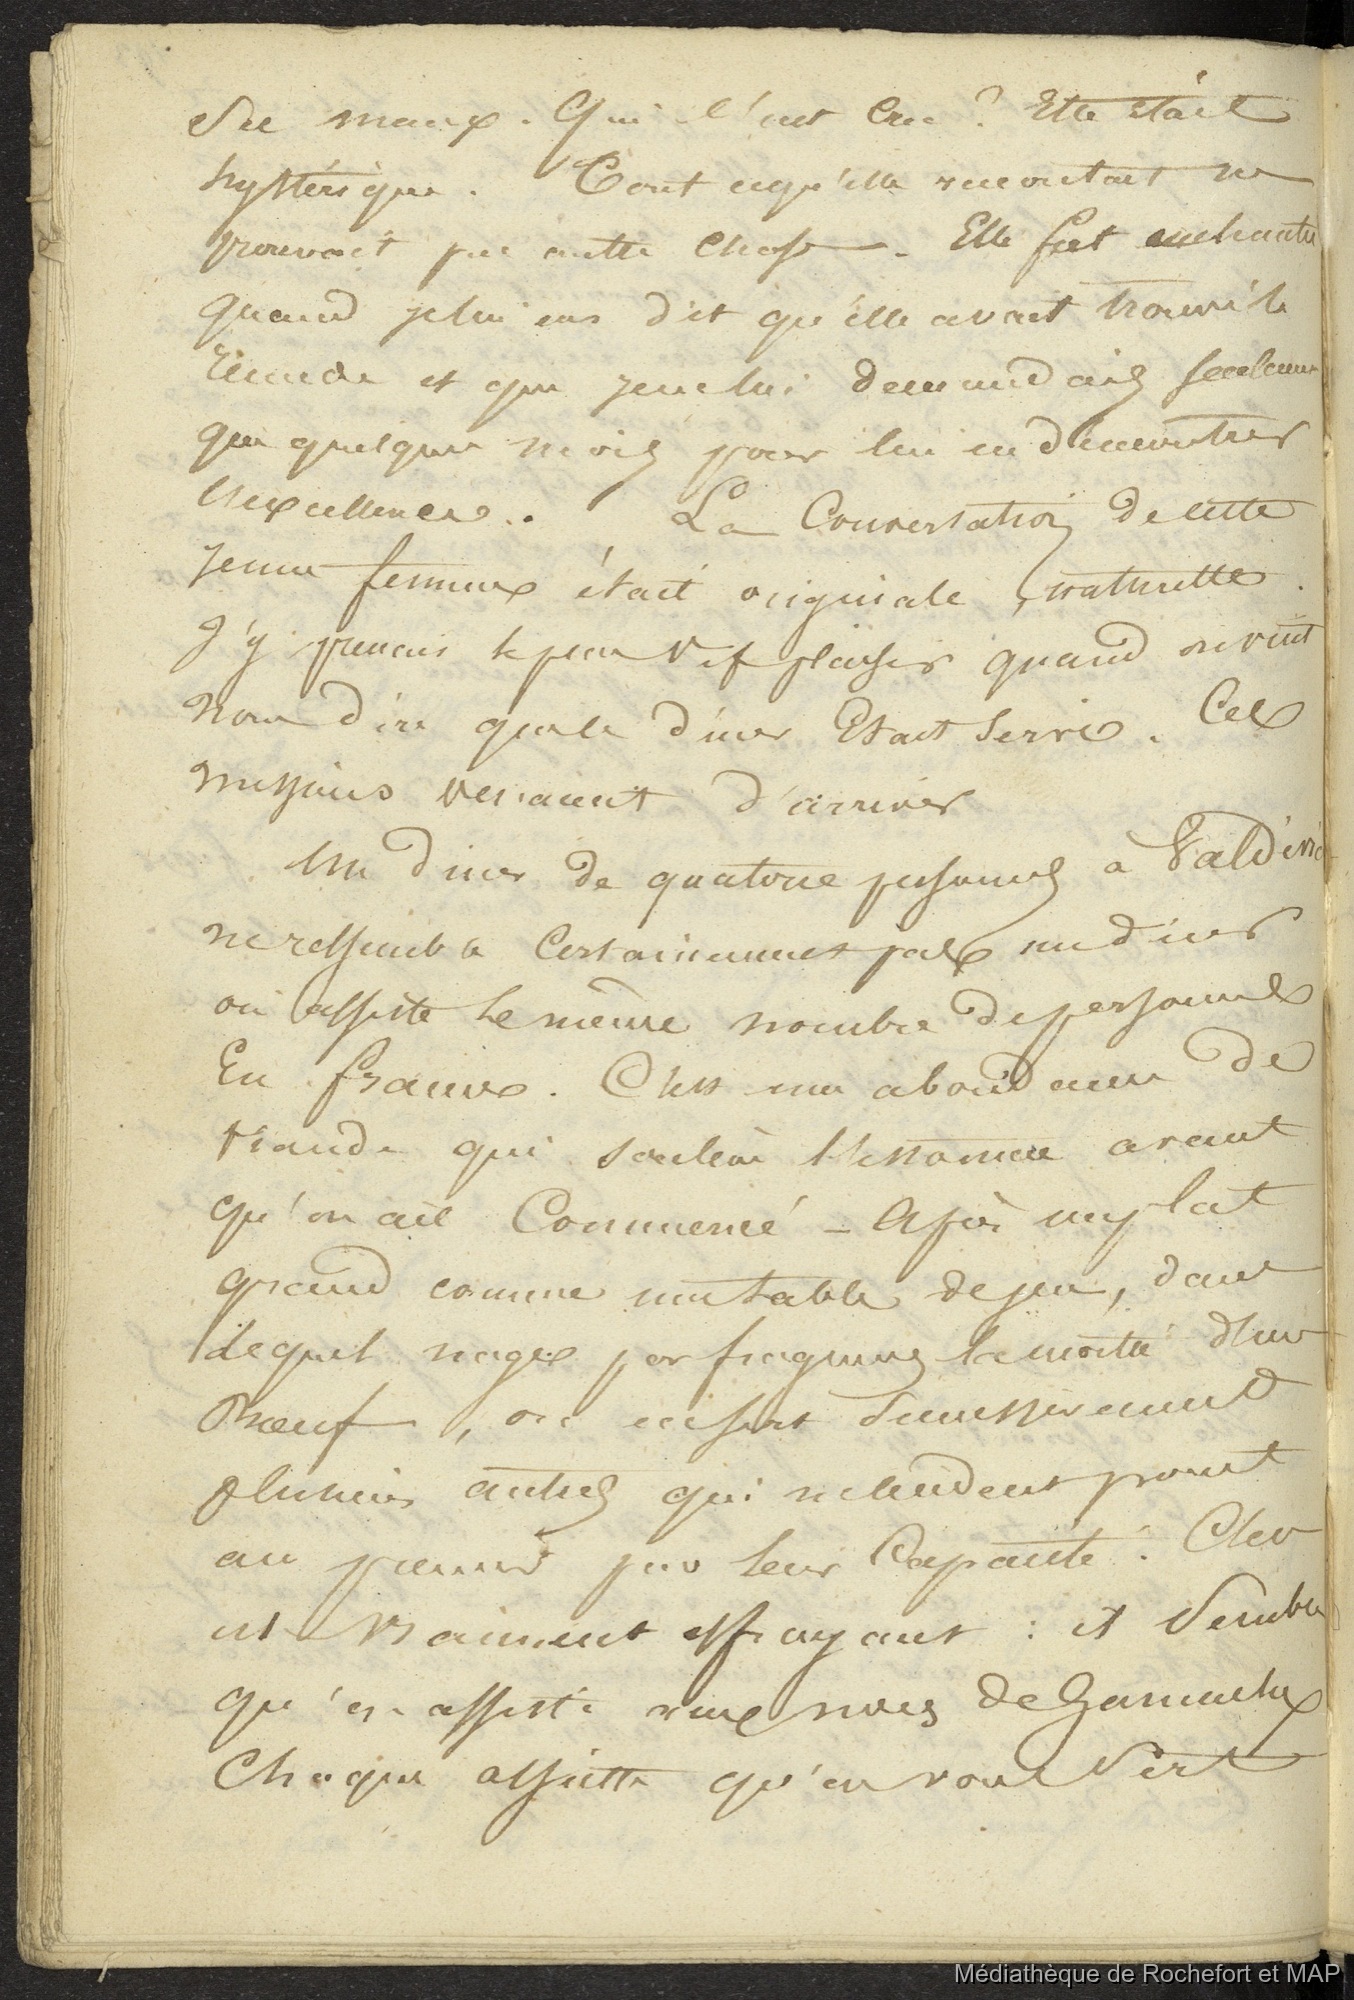 ses maux. Qui l'eut cru ? Elle était
hystérique. Tout ce qu'elle racontait ne
prouvait pas autre chose. Elle fut enchantée
quand je lui eus dit qu'elle avait trouvé le
remède et que je ne lui demandais seulement
que quelques mois pour lui en démontrer
l'excellence. La Conversation de cette
jeune femme était originale, naturelle.
J'y prenais le plus vif plaisir quand on vint
nous dire que le diner Etait Servi. Ces
messieurs venaient d'arriver
Un diner de quatorze personnes à Valdivia
ne ressemble Certainement pas au diner
où assiste le même nombre de personnes
En france. C'est une abondance de
viande qui soulève l'estomac avant
qu'on ait Commencé - Après un plat
grand comme une table de jeu, dans
lequel nage par fragments la moitié d'un
Bœuf, on en sert successivement
plusieurs autres qui ne le cèdent point
au premier par leur Capacité. C'en
est vraiment effrayant : il semble
qu'on assiste aux noces de Gamache
Chaque assiette qu'on vous sert
Médiathèque de Rochefort et MAP